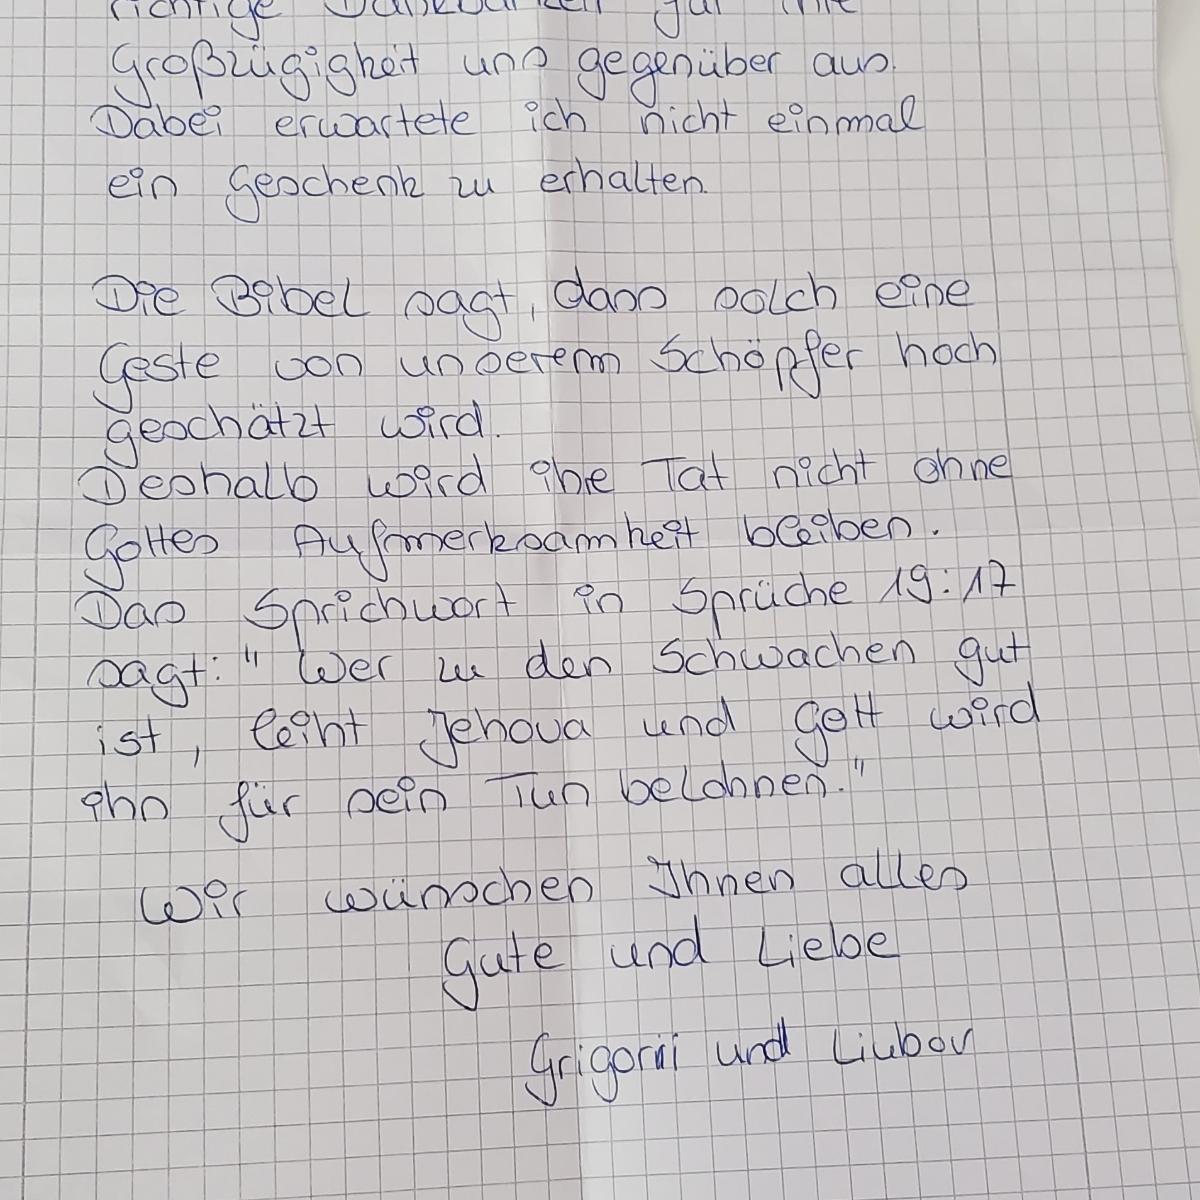 richtige Dankbarkeit für Ihre
Großzügigkeit uns gegenüber aus.
Dabei erwartete ich nicht einmal
ein Geschenk zu erhalten.
Die Bibel sagt, dass solch eine
Geste von unserem Schöpfer hoch
geschätzt wird.
Deshalb wird ihre Tat nicht ohne
Gottes Aufmerksamkeit bleiben.
Das Sprichwort in Sprüche 19:17
sagt: "Wer zu den Schwachen gut
ist, leiht Jehova und Gott wird
ihn für sein Tun belohnen."
Wir wünschen Ihnen alles
Gute und Liebe
Grigorii und Liubov